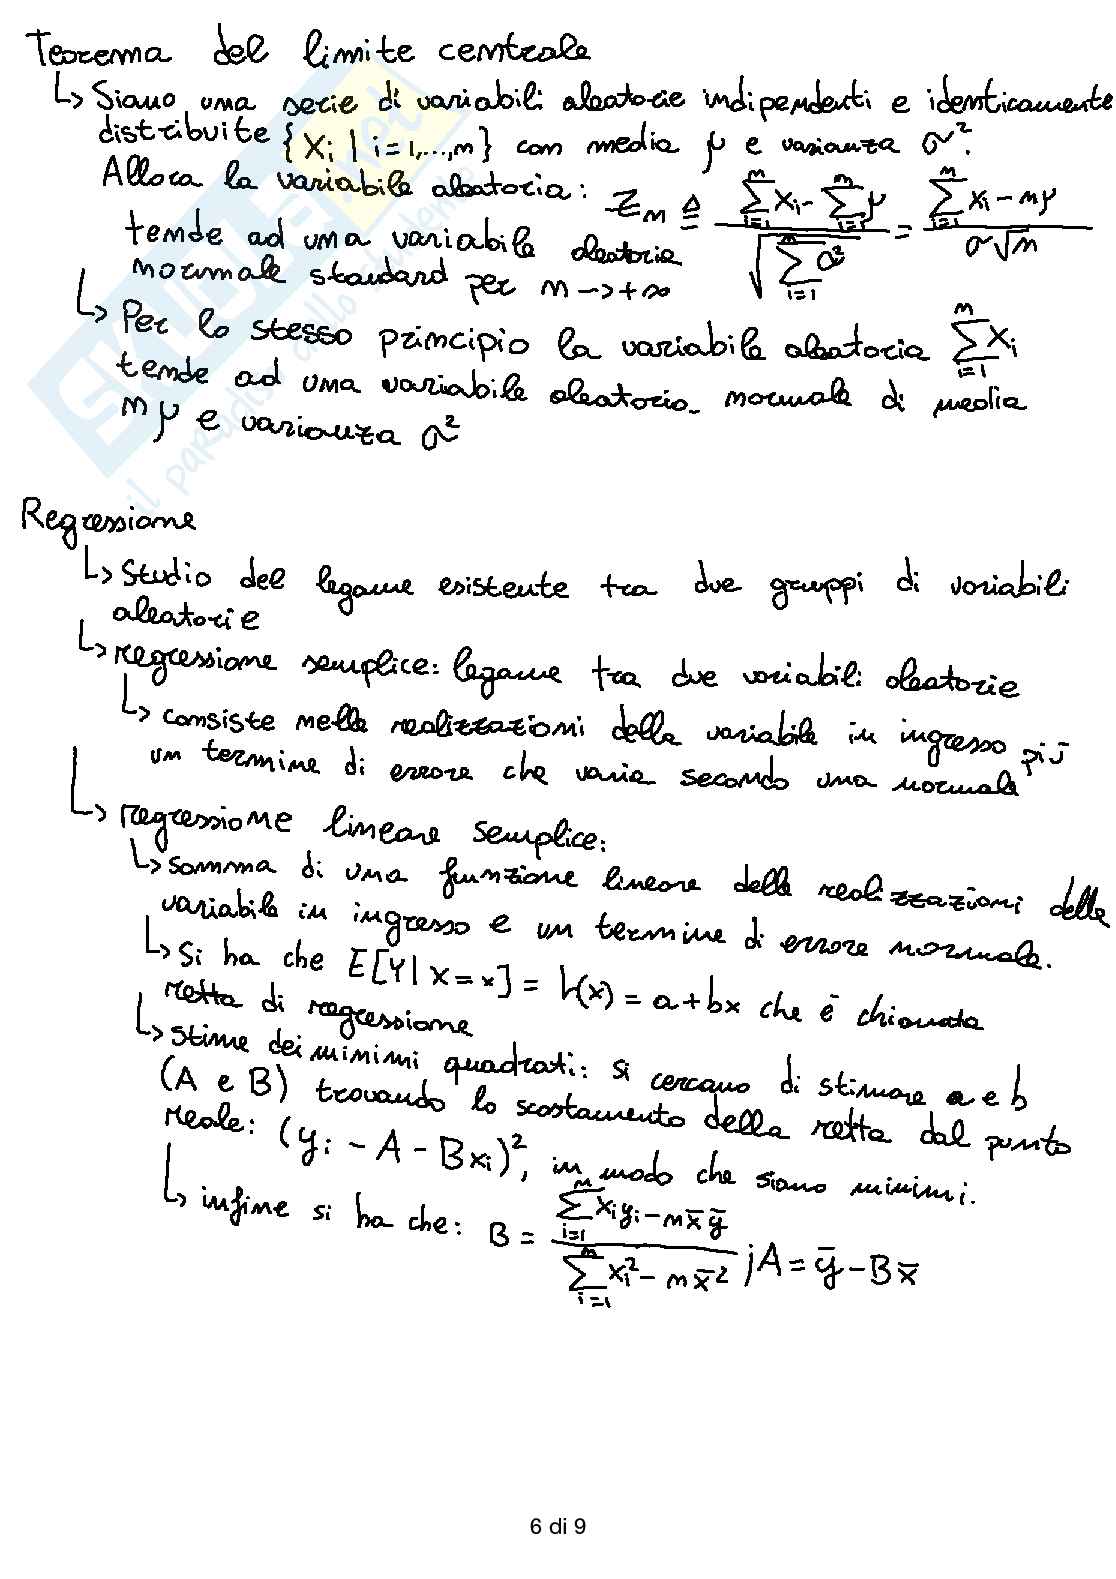 Teorema del limite centrale
↳ Siano una serie di variabili aleatorie indipendenti e identicamente
distribuite {Xi | i=1,...,n} con media μ e varianza σ².
Allora la variabile aleatoria: Zn ≜ (∑_{i=1}^{n} Xi - ∑_{i=1}^{n} μ) / √(∑_{i=1}^{n} σ²) = (∑_{i=1}^{n} Xi - nμ) / (σ√n)
tende ad una variabile aleatoria
normale standard per n → +∞
↳ Per lo stesso principio la variabile aleatoria ∑_{i=1}^{n} Xi
tende ad una variabile aleatoria normale di media
nμ e varianza σ²
Regressione
↳ Studio del legame esistente tra due gruppi di variabili
aleatorie
↳ regressione semplice: legame tra due variabili aleatorie
↳ consiste nelle realizzazioni della variabile in ingresso più
un termine di errore che varia secondo una normale
↳ regressione lineare semplice:
↳ somma di una funzione lineare delle realizzazioni della
variabile in ingresso e un termine di errore normale.
↳ Si ha che E[Y|X=x] = h(x) = a+bx che è chiamata
retta di regressione
↳ stime dei minimi quadrati: si cercano di stimare a e b
(A e B) trovando lo scostamento della retta dal punto
reale: (yi - A - Bxi)², in modo che siano minimi.
↳ infine si ha che: B = (∑_{i=1}^{n} xi yi - n x̄ ȳ) / (∑_{i=1}^{n} xi² - n x̄²) ; A = ȳ - B x̄
6 di 9
SKUOLA.net
il paradiso dello studente